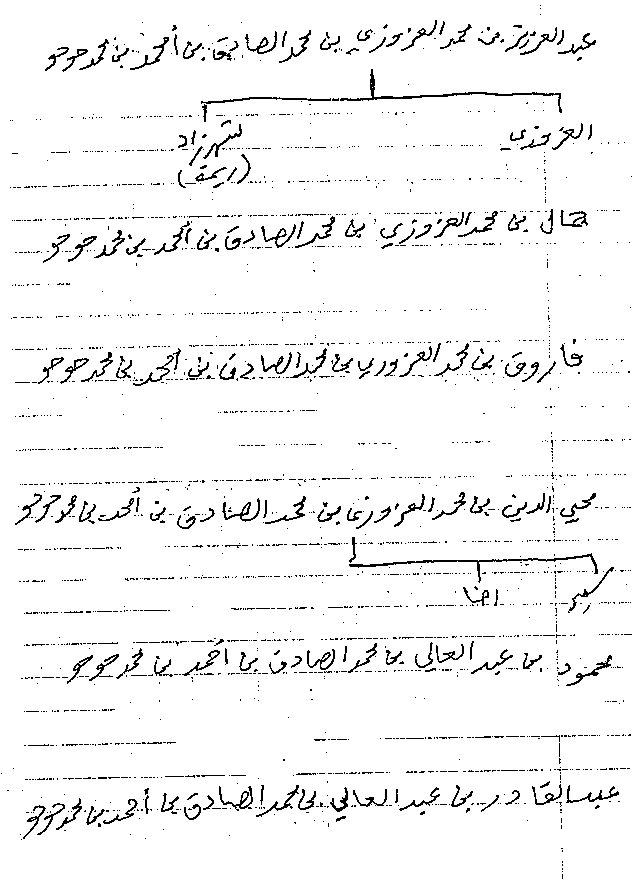 عبد العزيز بن محمد العزوزي بن محمد الصادق بن أحمد بن محمد حوحو
العزوزي شهرزاد
(ريمة)
هال بن محمد العزوزي بن محمد الصادق بن أحمد بن محمد حوحو
فاروق بن محمد العزوزي بن محمد الصادق بن أحمد بن محمد حوحو
محي الدين بن محمد العزوزي بن محمد الصادق بن أحمد بن محمد حوحو
محمود بن عبد العالي بن محمد الصادق بن أحمد بن محمد حوحو
عبد القادر بن عبد العالي بن محمد الصادق بن أحمد بن محمد حوحو